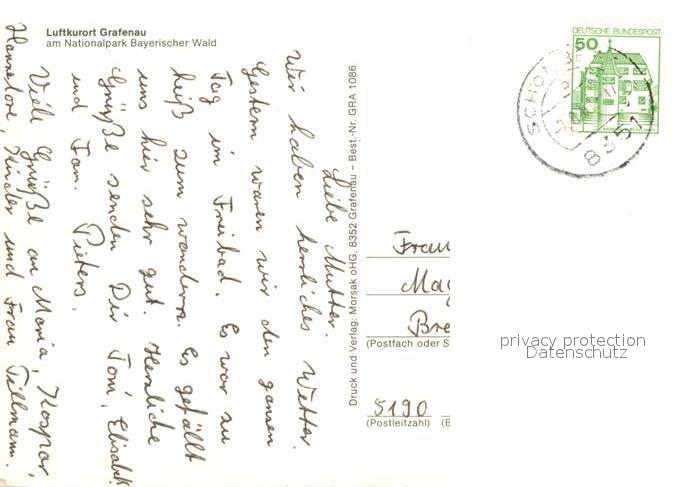 Luftkurort Grafenau
am Nationalpark Bayerischer Wald
Liebe Mutter.
Wir haben herrliches Wetter.
Gestern waren wir den ganzen
Tag im Freibad. Es war zu
heiß zum wandern. Es gefällt
uns hier sehr gut. Herzliche
Grüße senden Dir Toni, Elisabeth
und Jan. Pieters.
Viele Grüße an Maria, Kaspar,
Hannelore, Kinder und Frau Tillmann.
Druck und Verlag: Morsak oHG, 8352 Grafenau – Best.-Nr. GRA 1086
DEUTSCHE BUNDESPOST
50
SCHÖNBE
8351
Frau
Ma
Bre
(Postfach oder S
5190
(Postleitzahl) (B
privacy protection
Datenschutz